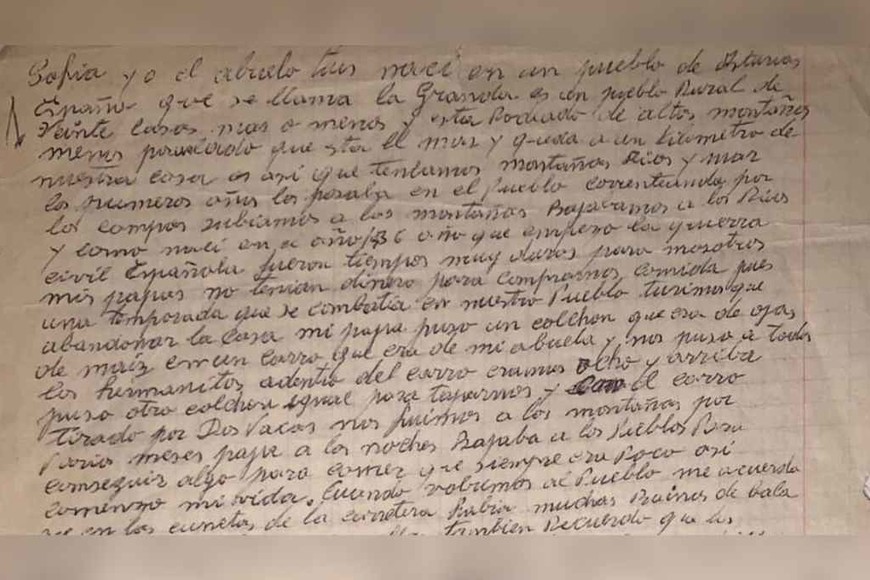 Sofia yo el abuelo Luis naci en un pueblo de Asturias
España que se llama la Granda es un pueblo Rural de
Veinte casas mas o menos y esta Rodiado de altas montañas
menos por un lado que esta el mar y queda a un kilometro de
nuestra casa es asi que teniamos montañas Rios y mar
los primeros años los pasaba en el Pueblo correteando por
los campos subiamos a las montañas Bajavamos a los Rios
y como naci en el año 1936 año que empeso la guerra
civil Española fueron tiempos muy duros para nosotros
mis papas no tenian dinero para comprarnos comida pues
una temporada que se combatia en nuestro Pueblo tuvimos que
abandonar la casa mi papa puso un colchon que era de ojas
de maiz en un carro que era de mi abuela y nos puso a todos
los hermanitos adentro del carro eramos ocho y arriba
puso otro colchon igual para taparnos y el carro
tirado por Dos Vacas nos fuimos a las montañas por
Varios meses papa a las noches Bajaba a los Pueblos Para
conseguir algo para comer que siempre era Poco asi
comenzo mi vida. Cuando volvimos al Pueblo me acuerdo
en las cunetas de la carretera Habia muchas Bainas de bala
tambien Recuerdo que las